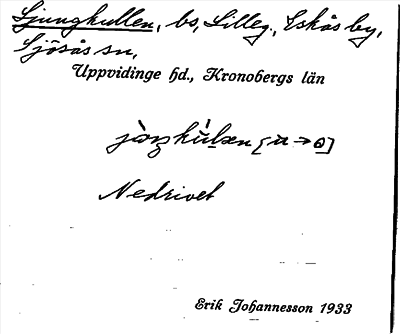 Ljungkullen, bs, Lilleg., Eskås by,
Sjösås sn,
Uppvidinge hd., Kronobergs län
Nedrivet
Erik Johannesson 1933